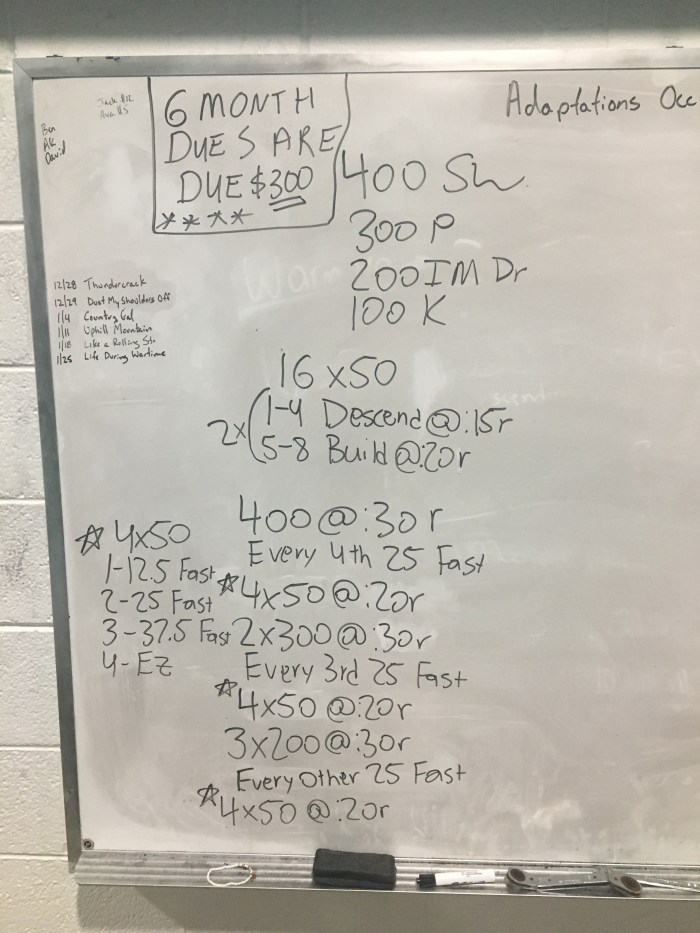 6 MONTH
DUES ARE
DUE $300
****
Adaptations Occ
Ben
AK
David
400 Sw
300 P
200 IM Dr
100 K
12/28 Thundercrack
12/29 Dust My Shoulders Off
1/4 Country Gal
1/11 Uphill Mountain
1/18 Like a Rolling Sto
1/25 Life During Wartime
16 x50
2x(1-4 Descend@:15r
5-8 Build @:20r
400 @:30 r
Every 4th 25 Fast
☆4x50@:20r
2x300@:30r
Every 3rd 25 Fast
☆4x50 @:20r
3x200@:30r
Every Other 25 Fast
☆4x50 @:20r
☆ 4x50
1-12.5 Fast
2-25 Fast
3-37.5 Fast
4- EZ